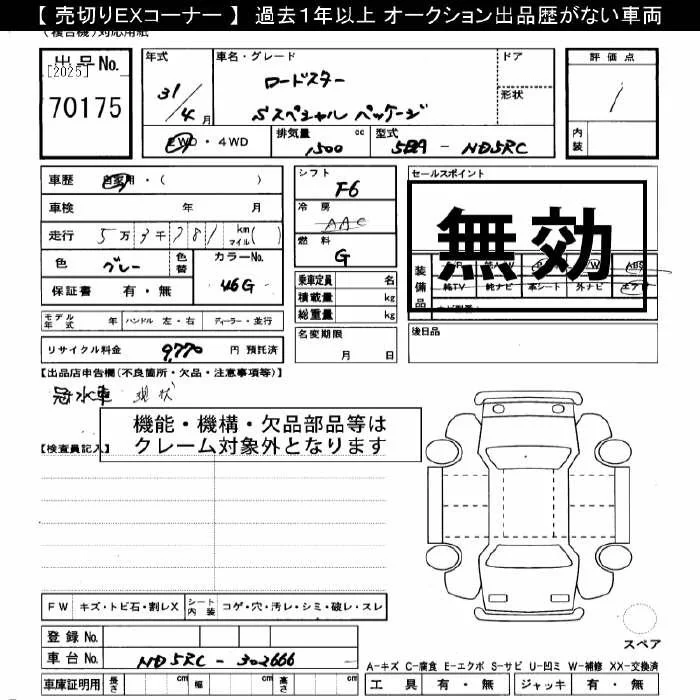 【 売切りEXコーナー 】 過去１年以上 オークション出品歴がない車両
(複合機)対応用紙
出品No. [2025] 70175
年式 31/4月
車名・グレード ロードスター
Sスペシャル パッケージ
ドア
形状
評価点
内装
2WD・4WD
排気量 1500 cc
型式 5BA - ND5RC
車歴 自家用・( )
車検 年 月
走行 5万3千781km マイル( )
色 グレー 色替 カラーNo. 46G
保証書 有・無
モデル年式 年 ハンドル 左・右 ディーラー・並行
リサイクル料金 9,770 円 預託済
シフト F6
冷房 AAC
燃料 G
乗車定員 名
積載量 kg
総重量 kg
名変期限
月 日
セールスポイント
無効
装備品
ABS
純TV 純ナビ 革シート 外ナビ エアB
後日品
【出品店申告欄(不良箇所・欠品・注意事項等)】
冠水車 現状
機能・機構・欠品部品等は
クレーム対象外となります
【検査員記入】
FW キズ・トビ石・割レX シート内装 コゲ・穴・汚レ・シミ・破レ・スレ
登録No.
車台No. ND5RC - 302666
車庫証明用 長さ cm 幅 cm 高さ cm
スペア
A-キズ C-腐食 E-エクボ S-サビ U-凹ミ W-補修 XX-交換済
工具 有・無 ジャッキ 有・無